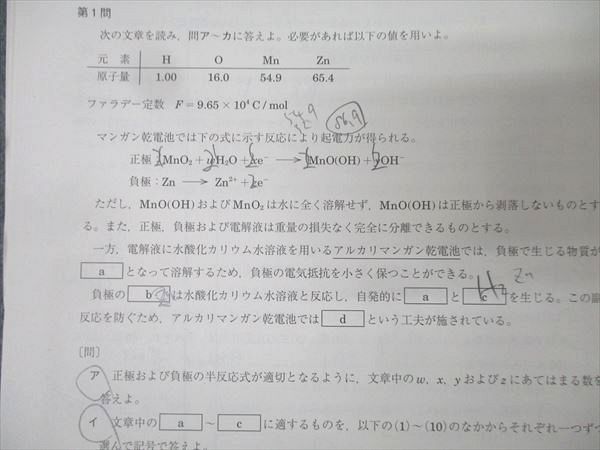 第1問
次の文章を読み,問ア〜カに答えよ。必要があれば以下の値を用いよ。
元 素 H O Mn Zn
原子量 1.00 16.0 54.9 65.4
ファラデー定数 F = 9.65 × 10⁴ C / mol
54.9
56.9
マンガン乾電池では下の式に示す反応により起電力が得られる。
正極: MnO₂ + H₂O + e⁻ → MnO(OH) + OH⁻
負極:Zn → Zn²⁺ + 2e⁻
ただし,MnO(OH)およびMnO₂は水に全く溶解せず,MnO(OH)は正極から剥落しないものとす
る。また,正極,負極および電解液は重量の損失なく完全に分離できるものとする。
一方,電解液に水酸化カリウム水溶液を用いるアルカリマンガン乾電池では,負極で生じる物質が
a となって溶解するため,負極の電気抵抗を小さく保つことができる。
Zn
負極の b は水酸化カリウム水溶液と反応し,自発的に a と c を生じる。この副
H₂
反応を防ぐため,アルカリマンガン乾電池では d という工夫が施されている。
〔問〕
ア 正極および負極の半反応式が適切となるように,文章中のw,x,yおよびzにあてはまる数を
答えよ。
イ 文章中の a 〜 c に適するものを,以下の(1)〜(10)のなかからそれぞれ一つずつ
選んで記号で答えよ。